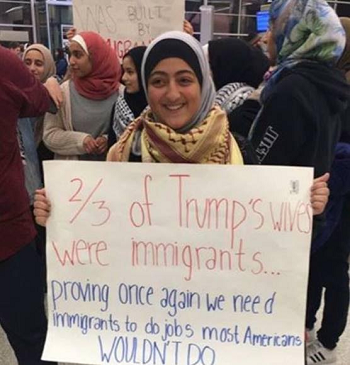 WAS BUILT
BY
IMMIGRANTS
2/3 of Trump's wives
were immigrants...
proving once again we need
immigrants to do jobs most Americans
WOULDN'T DO